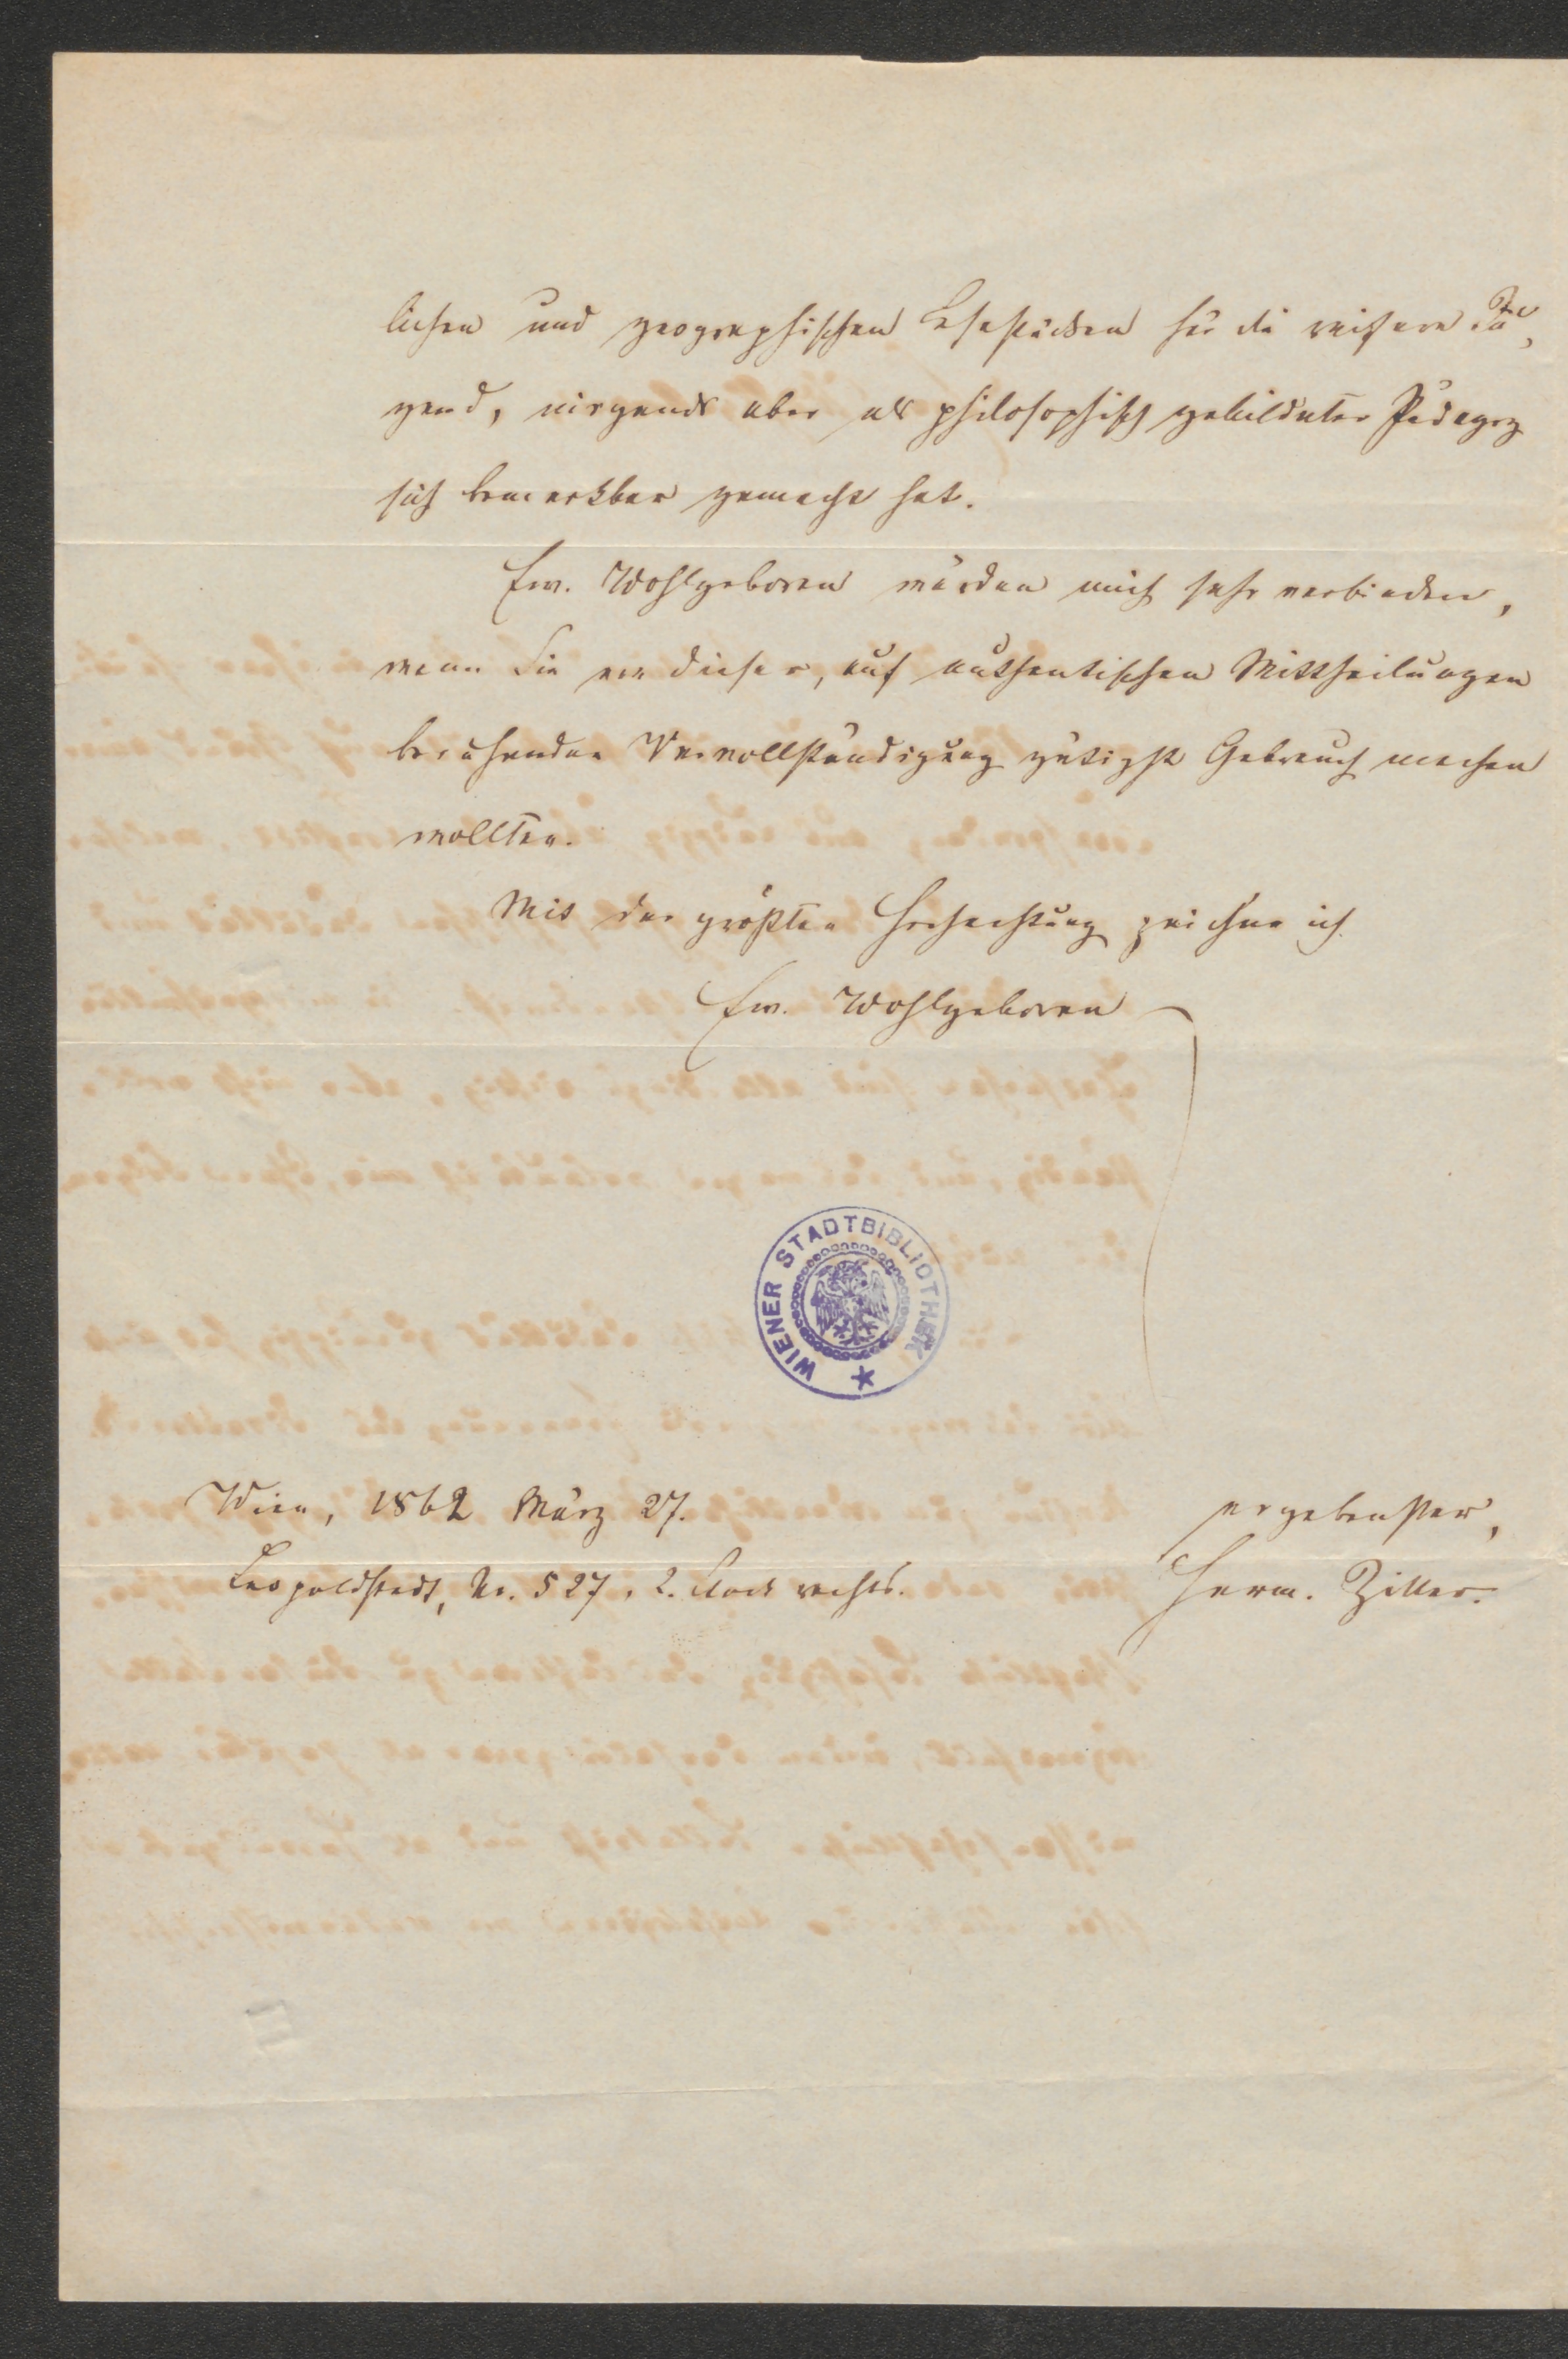 lichen und geographischen Lesestücken für die reifere Ju,
gend, nirgends aber als philosophisch gebildeter Pädagog
sich bemerkbar gemacht hat.
Ew. Wohlgeboren würden mich sehr verbinden,
wenn Sie von dieser, auf authentischen Mittheilungen
beruhenden Vervollständigung gütigst Gebrauch machen
wollten.
Mit der größten Hochachtung zeichne ich
Ew. Wohlgeboren
WIENER STADTBIBLIOTHEK
Wien, 1862 März 27.
Leopoldstadt, Nr. 527, 2. Stock rechts.
ergebenster,
Herm. Ziller.